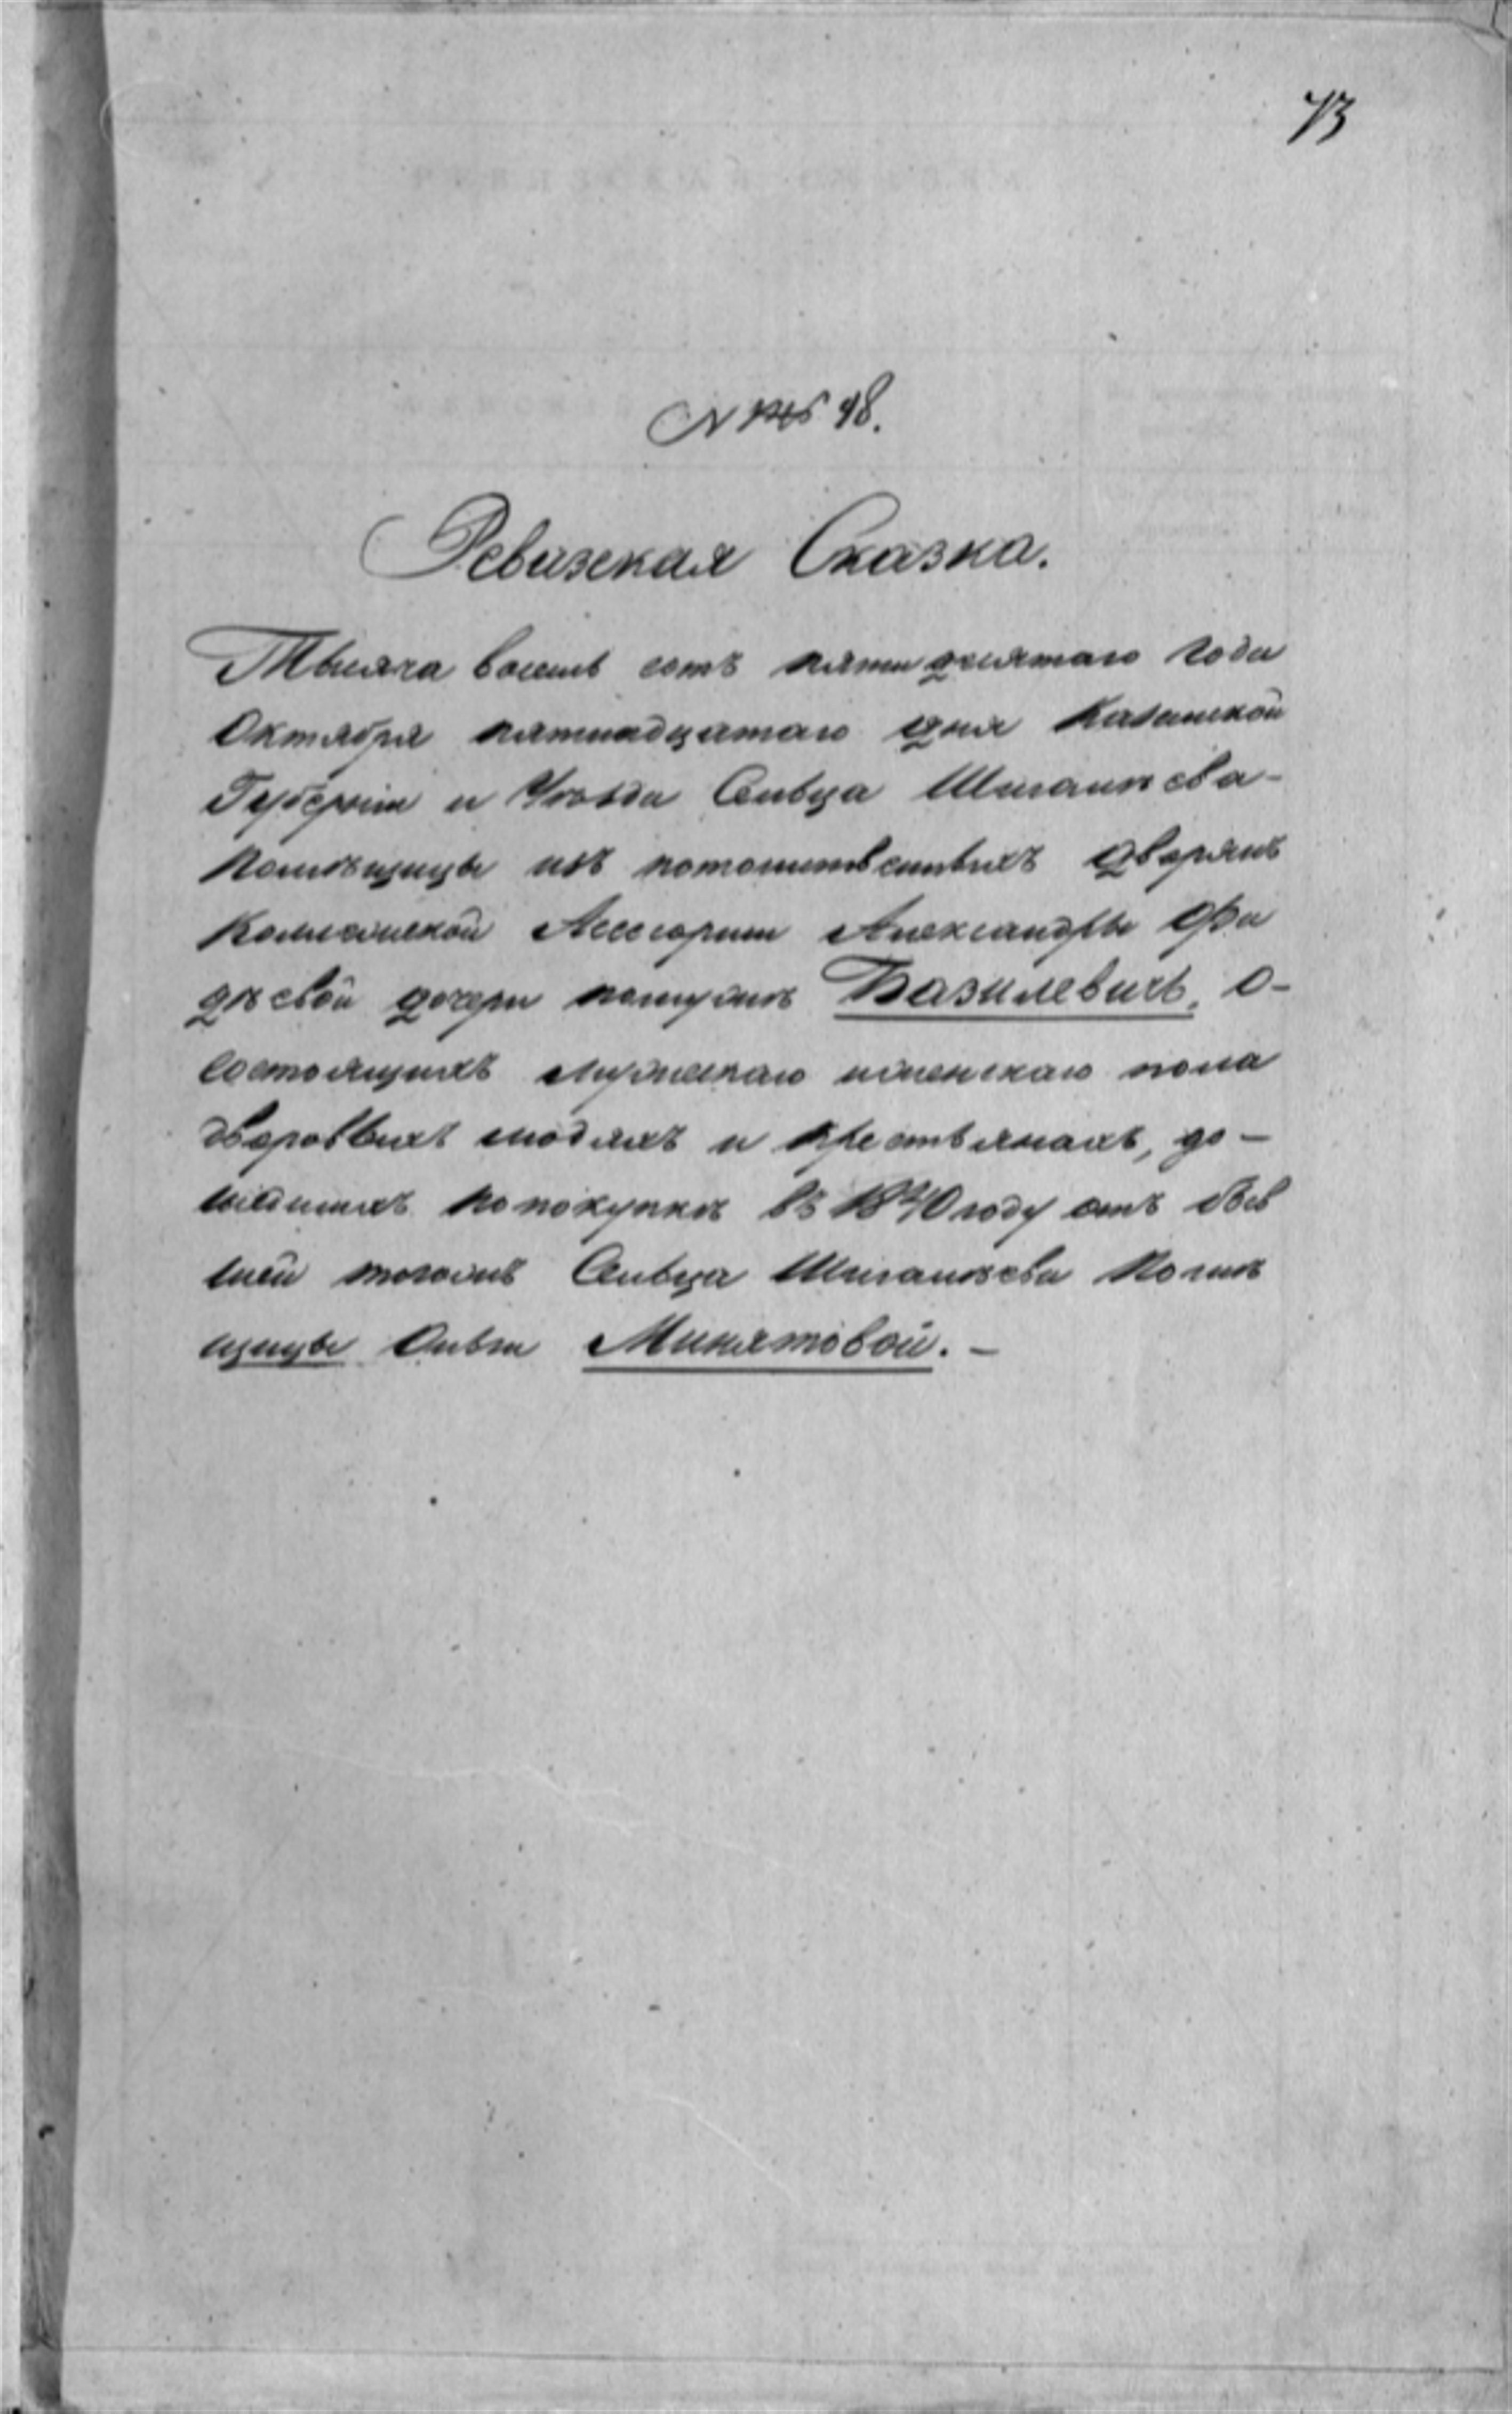 73
N 48.
Ревизская Сказка.
Тысяча восемь сотъ пятидесятаго года
Октября пятнадцатаго дня Казанской
Губерніи и Уѣзда Сельца Шигалѣева-
помѣщицы изъ потомственныхъ дворянъ
Коллежской Ассесорши Александры Фа
дѣевой дочери помужѣ Базилевичь, о-
состоящихъ мужескаго иженскаго пола
дворовыхъ людяхъ и крестьянахъ, до-
шедшихъ попокупкѣ въ 1840 году отъ быв
шей тогожъ Сельца Шигалѣева Помѣ
щицы Ольги Минятовой. -